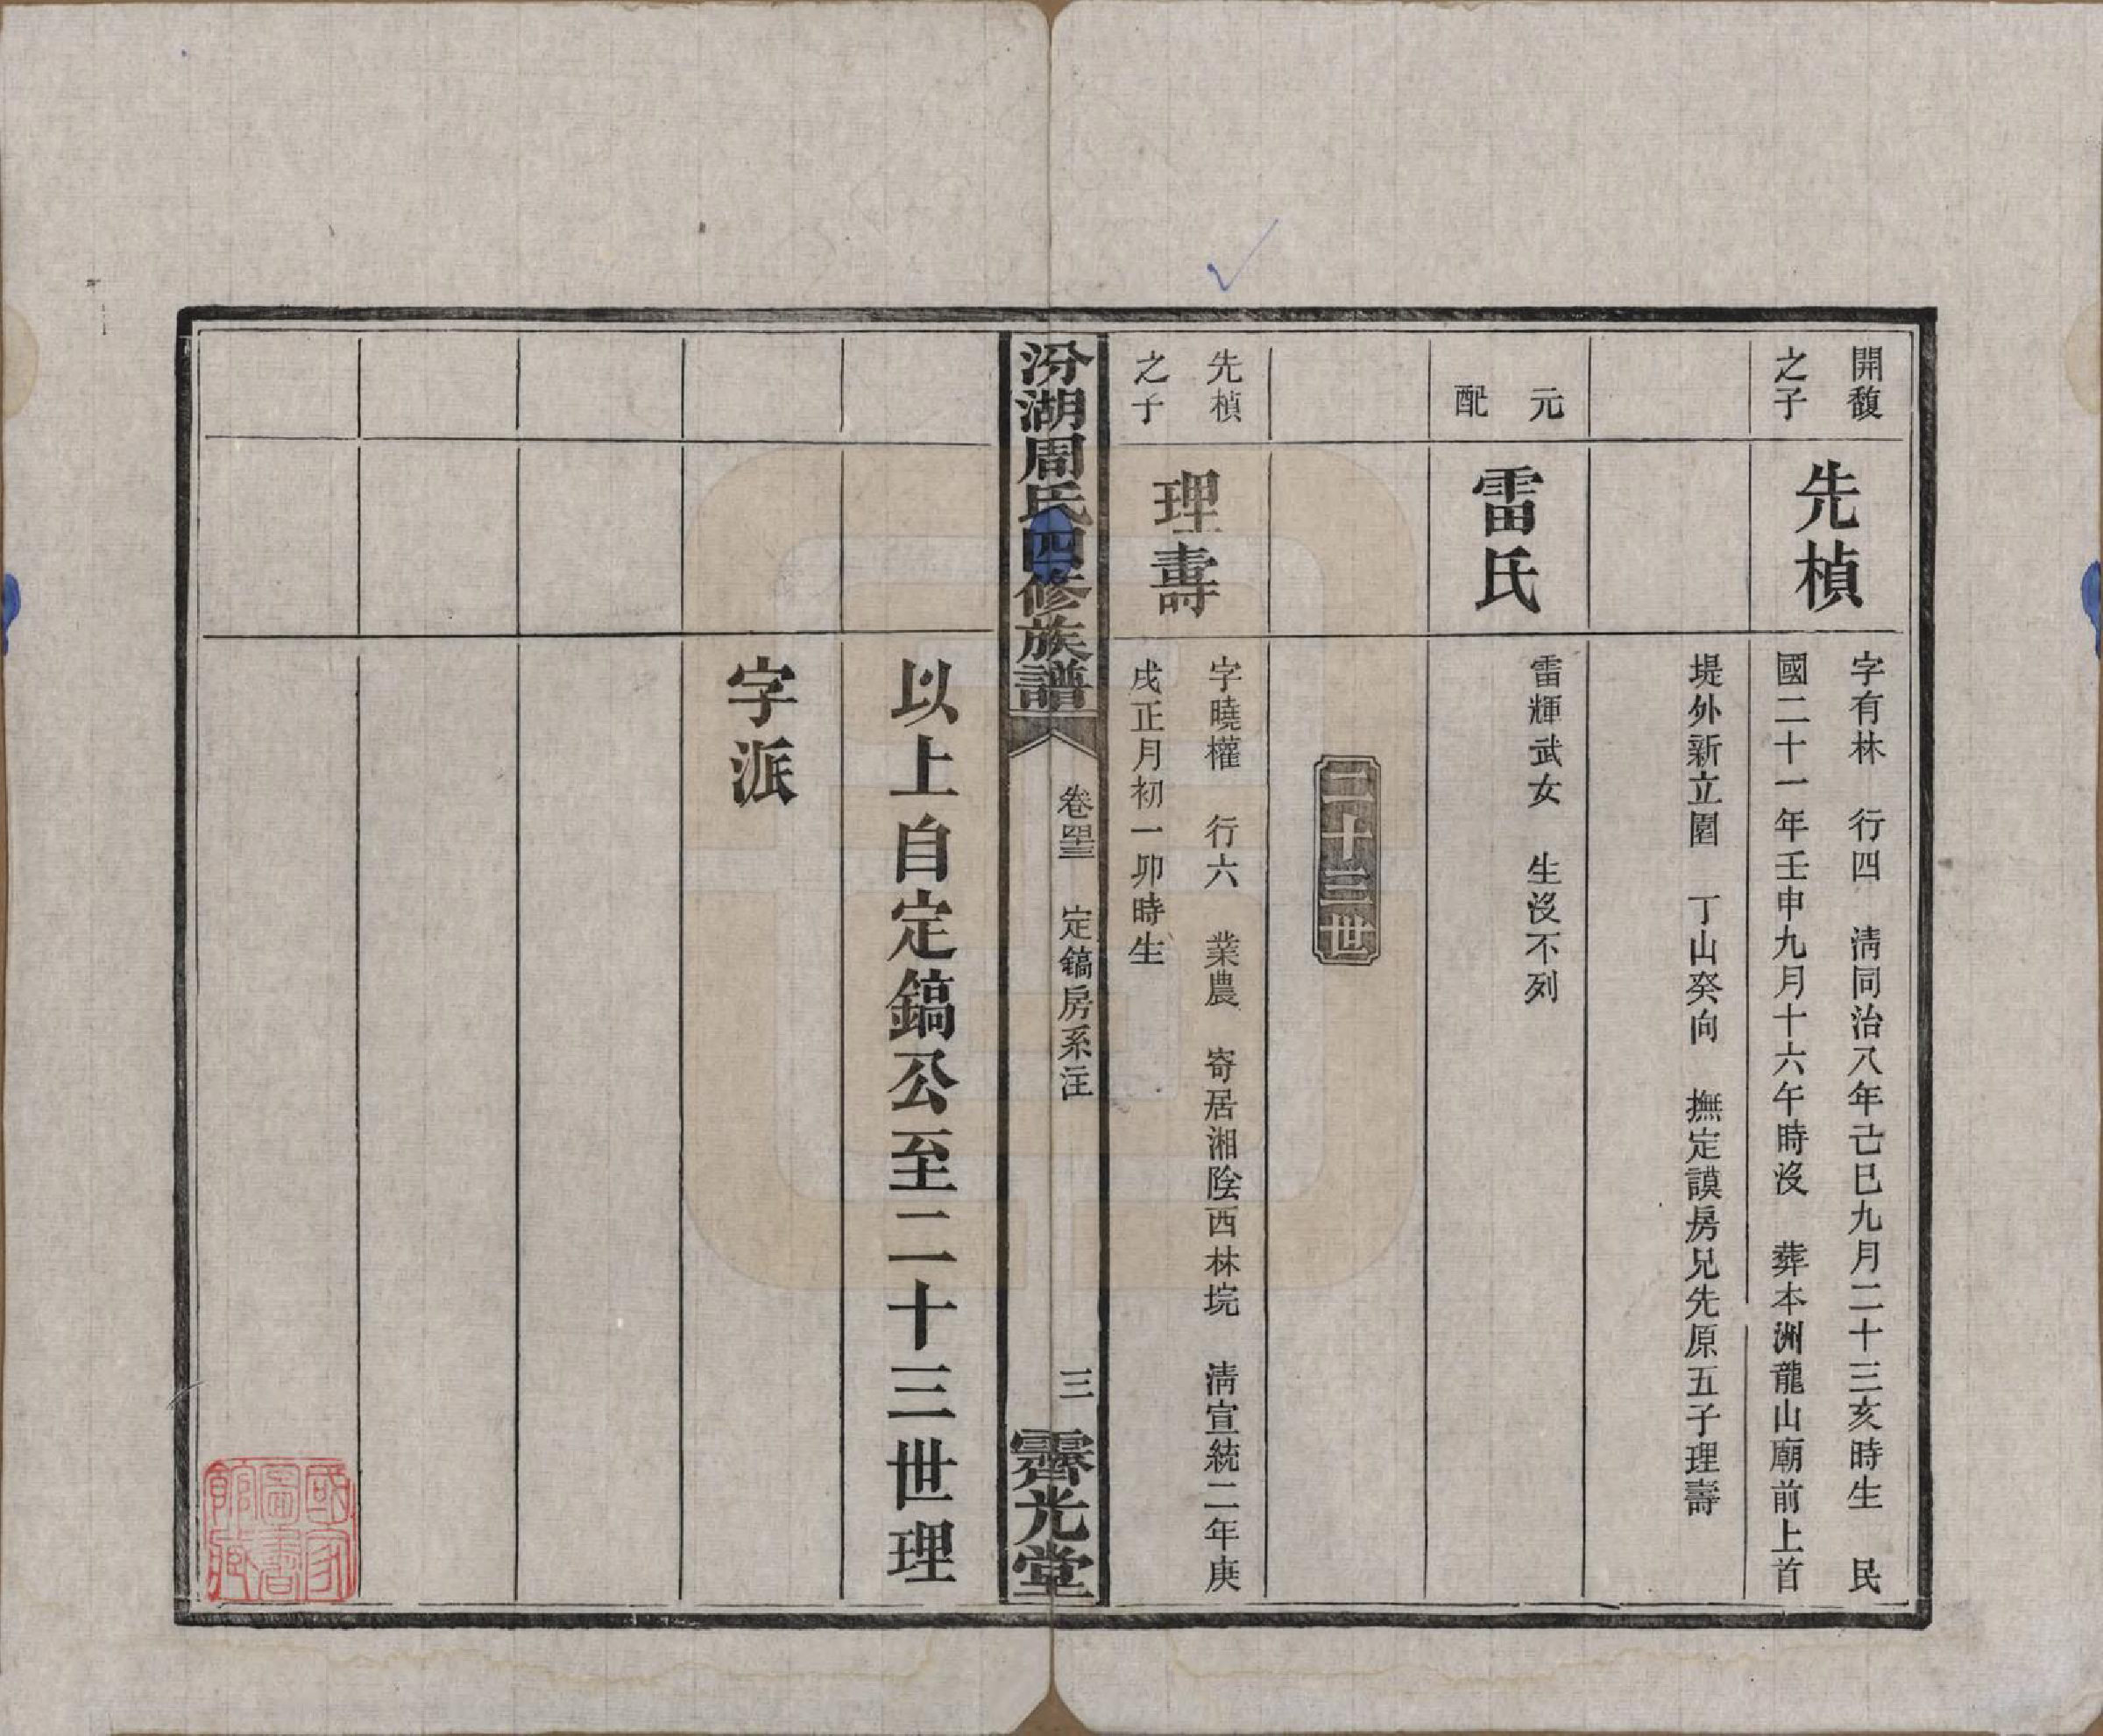 開馥
之子
先楨
字有林　行四　清同治八年己巳九月二十三亥時生　民
國二十一年壬申九月十六午時沒　葬本洲龍山廟前上首
堤外新立園　丁山癸向　撫定謨房兄先原五子理壽
元
配
雷氏
雷輝武女　生沒不列
二十三世
先楨
之子
理壽
字曉權　行六　業農　寄居湘陰西林垸　清宣統二年庚
戌正月初一卯時生
汾湖周氏四修族譜
卷四三　定鎬房系注
三
霽光堂
以上自定鎬公至二十三世理
字派
國家
圖書
館藏